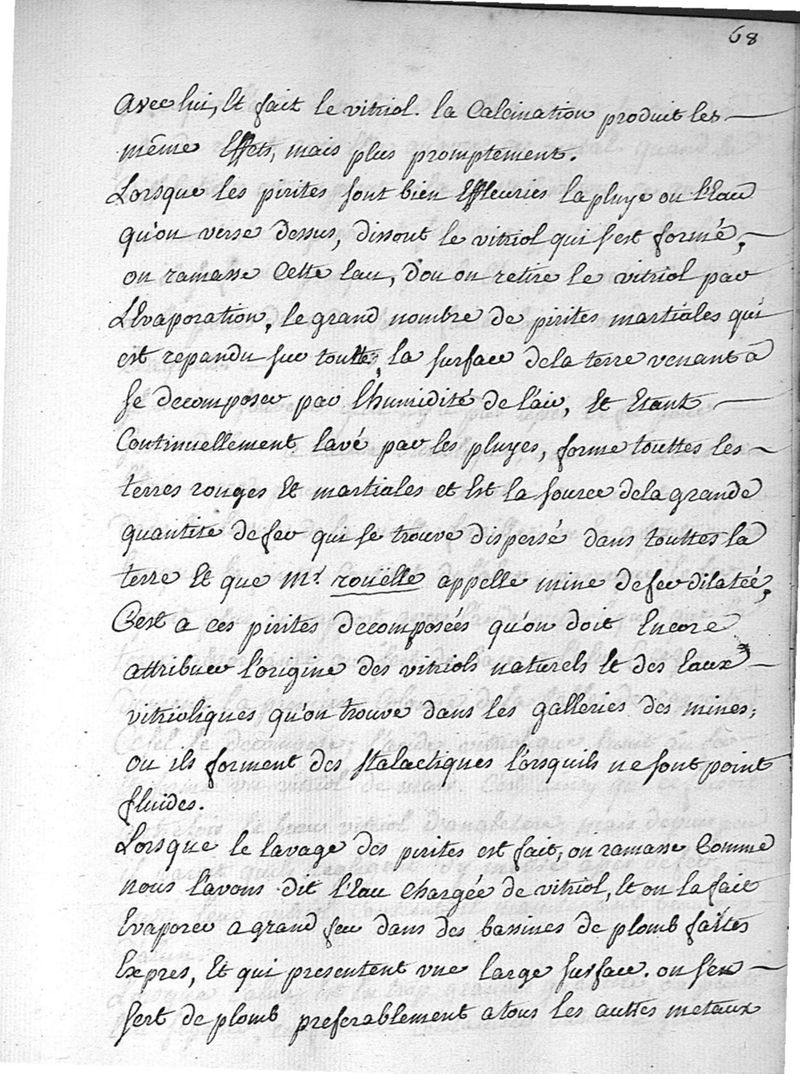 68
avec lui, et fait le vitriol. la Calcination produit les
même Effets, mais plus promptement.
Lorsque les pirites sont bien Effleuries la pluye ou l'Eau
qu'on verse dessus, dissout le vitriol qui s'est formé,
on ramasse Cette Eau, d'ou on retire le vitriol par
L'Evaporation, le grand nombre de pirites martiales qui
est repandu sur toutte, la surface dela terre venant a
se decomposer par l'humidité de l'air, et Etant
Continuellement lavé par les pluyes, forme touttes les
terres rouges et martiales et Est la source dela grande
quantité de fer qui se trouve dispersé dans touttes la
terre et que Mr. rouëlle appelle mine de fer dilatée,
C'est a ces pirites decomposées qu'on doit Encore
attribuer l'origine des vitriols naturels et des Eaux
vitrioliques qu'on trouve dans les galleries des mines,
ou ils forment des stalactiques lorsquils ne sont point
fluides.
Lorsque le lavage des pirites est fait, on ramasse Comme
nous l'avons dit l'Eau Chargée de vitriol, et on la fait
Evaporer a grand feu dans des bassines de plomb faites
Expres, Et qui presentent vne large surface. on s'en
sert de plomb preferablement a tous les autres metaux